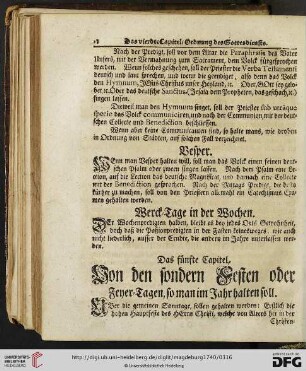 Das vierdte Capitel/ Ordnung des Gottesdiensts.
Nach der Predigt, soll vor dem Altar die Paraphrasis des Vater
Unsers, mit der Vermahnung zum Sacrament, dem Volck fürgesprochen
werden. Wenn solches geschehen, soll der Priester die Verba Testamenti
deutsch und laut sprechen, und wenn die geendiget, also denn das Volck
den Hymnum, JEsus Christus unser Heyland, ic. Oder,
ber ic. Oder das deutsche Sanctus, Jesaia dem Propheten, das geschach, ic.
singen lassen.
Dieweil man den Hymnum singet, soll der Priester sub utraque
specie das Volck communiciren, und nach der Communion, mit der deut-
schen Collecte und Benediction beschliessen.
Wenn aber keine Communicanten sind, so halte mans, wie droben
in Ordnung von Städten, auf solchen Fall verzeichnet.
Vesper.
Wenn man Vesper halten will, soll man das Volck einen feinen deut-
schen Psalm oder zween singen lassen. Nach den Psalm eine Le-
ction, auf die Lection das deutsche Magnificat, und darnach eine Collecte
mit der Benediction gesprochen. Nach der Mittags Predigt, die des
kürtzer zu machen, soll von den Priestern allemahl ein Catechismus Exa-
men gehalten werden.
Werck-Tage in der Wochen.
Die Wochenpredigten halten, bleibt zu des jedes Orts Gelegenheit,
doch daß die Passionpredigten in der Fasten keineswegs, wie auch
nicht liederlich, ausser der Erndte, die andern im Jahre unterlassen wer-
den.
Das fünfte Capitel.
Von den sondern Festen oder
Feyer-Tagen, so man im Jahr halten soll.
Uber die gemeinen Sonntage, sollen gehalten werden: Erstlich die
hohen Hauptfeste des HErrn Christi, welche von Alters her in der
Christen-
UNIVERSITÄTS-
BIBLIOTHEK
HEIDELBERG
http://digi.ub.uni-heidelberg.de/diglit/magdeburg1740/0316
© Universitätsbibliothek Heidelberg